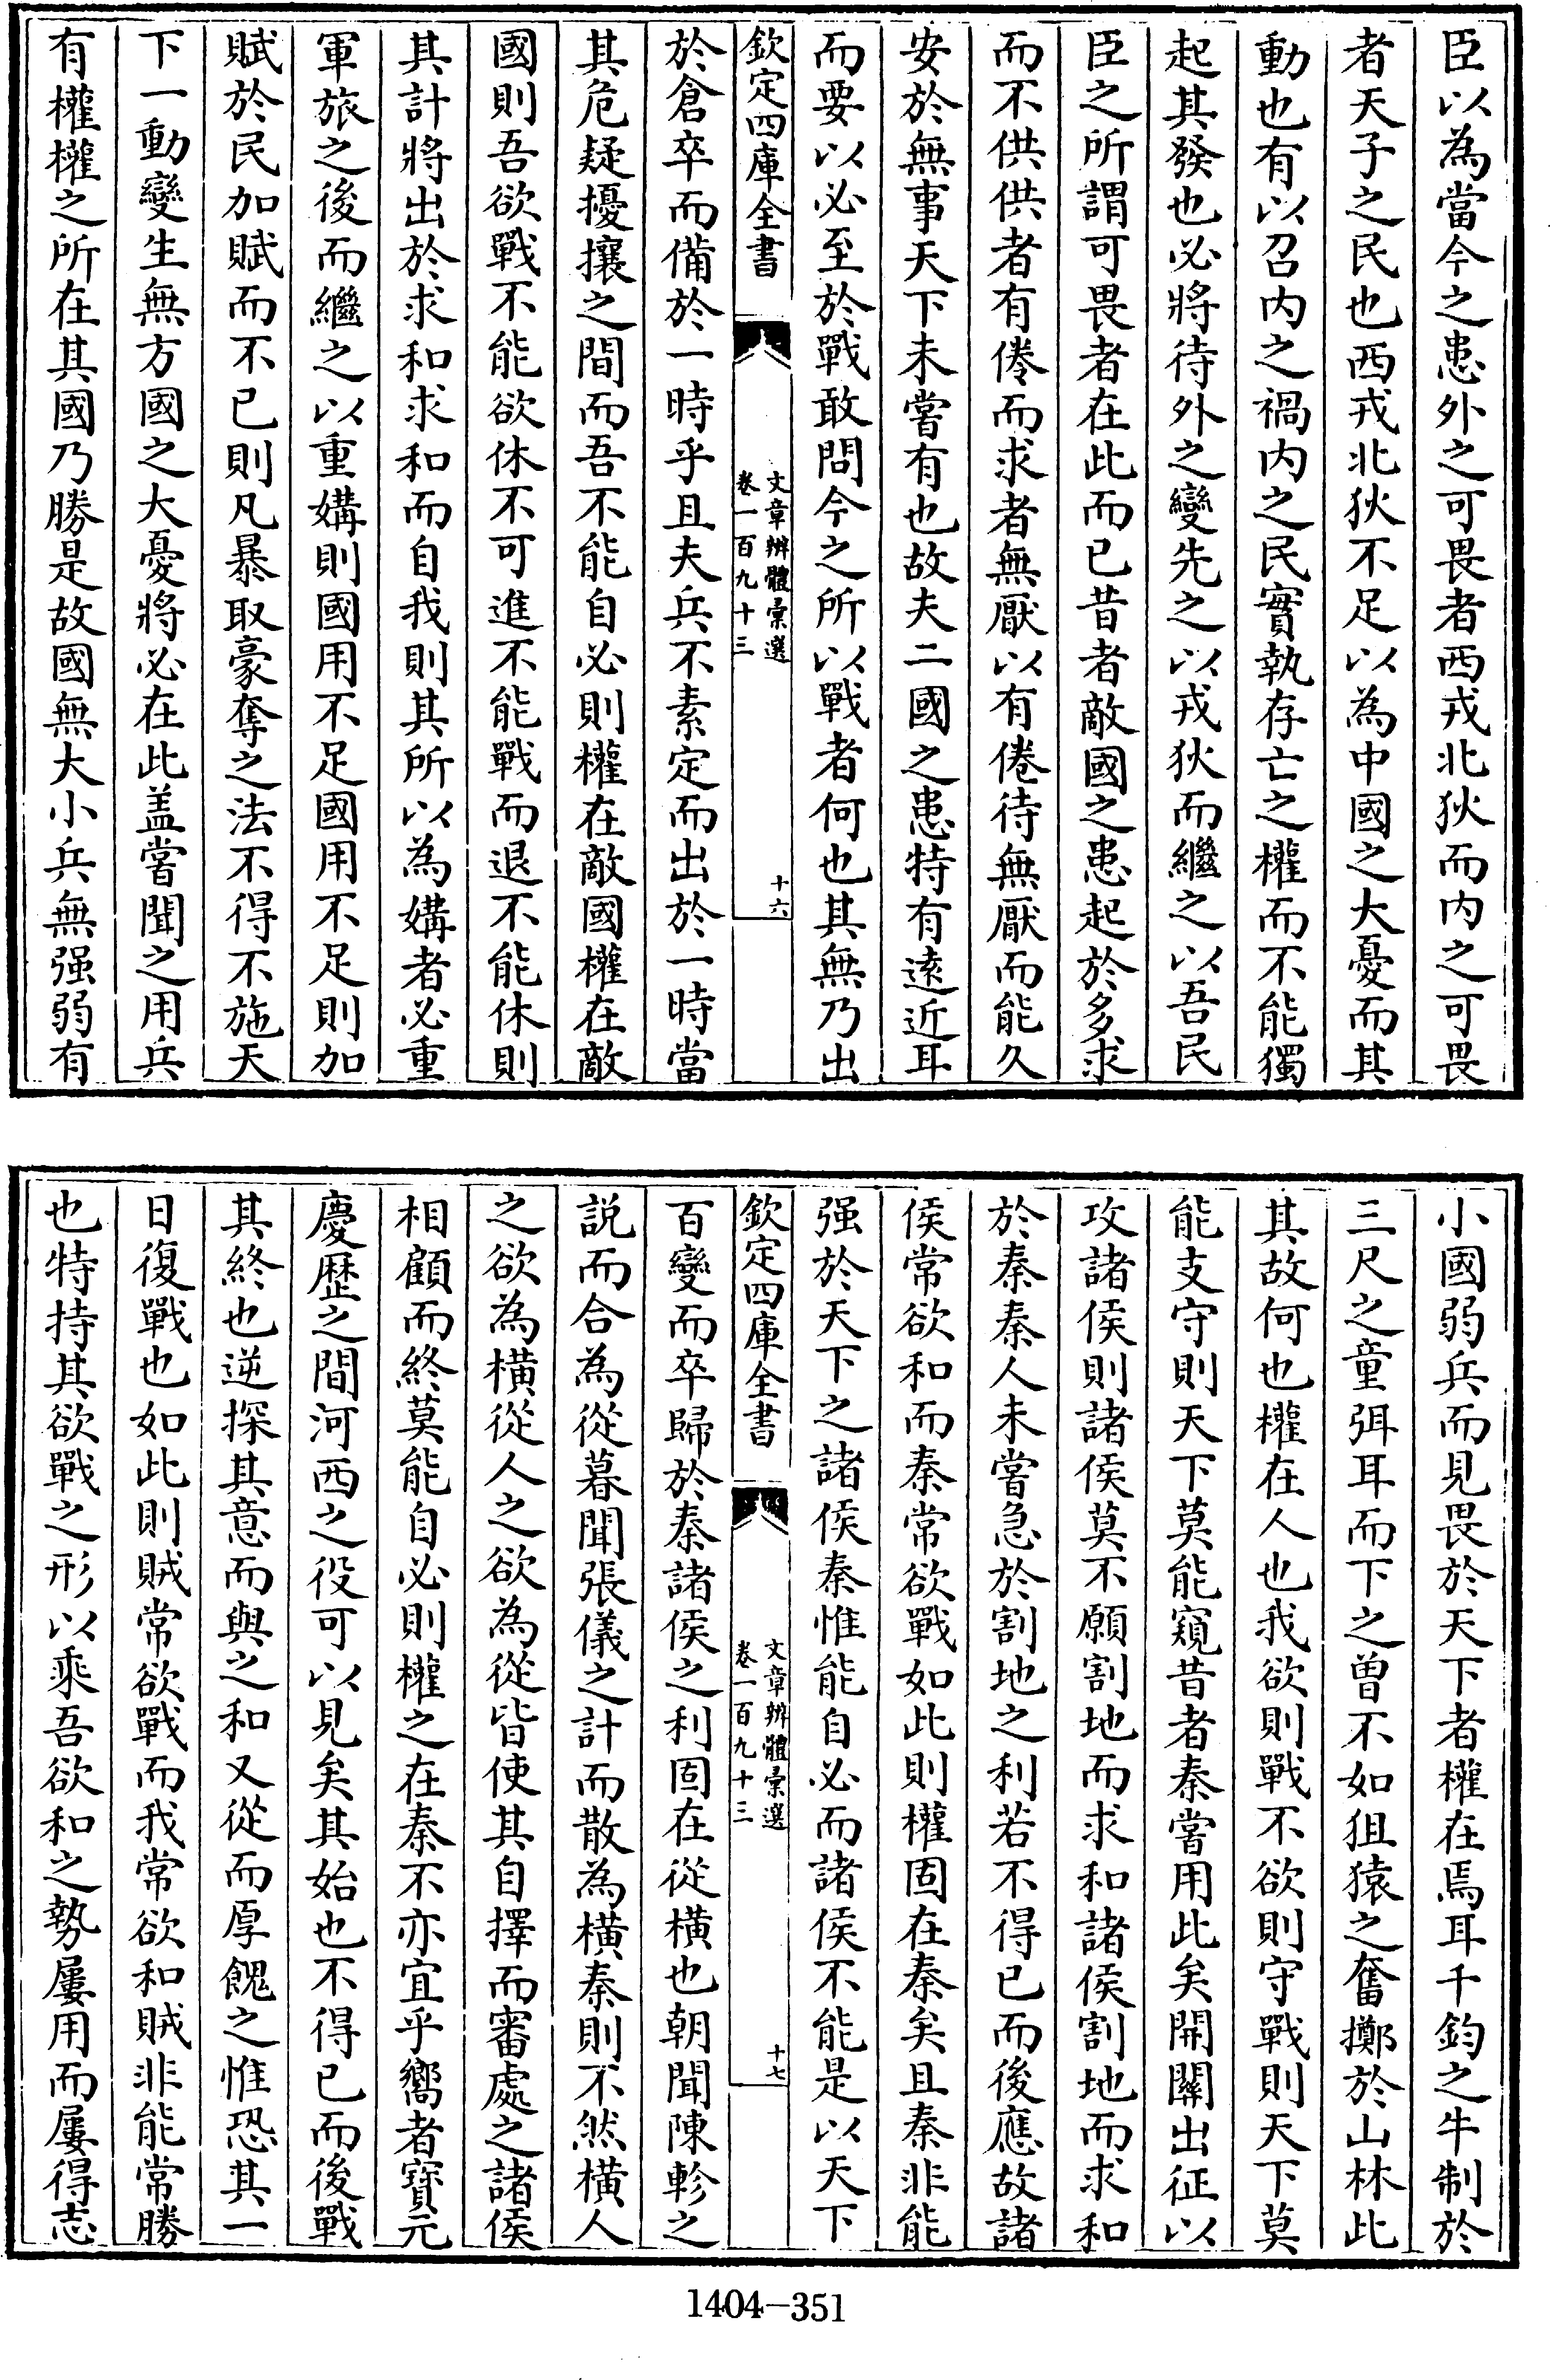 臣以為當今之患外之可畏者西戎北狄而内之可畏
者天子之民也西戎北狄不足以為中國之大憂而其
動也有以召内之禍内之民實執存亡之權而不能獨
起其發也必將待外之變先之以戎狄而繼之以吾民
臣之所謂可畏者在此而已昔者敵國之患起於多求
而不供供者有倦而求者無厭以有倦待無厭而能久
安於無事天下未嘗有也故夫二國之患特有遠近耳
而要以必至於戰敢問今之所以戰者何也其無乃出
欽定四庫全書
文章辨體彙選
卷一百九十三
十六
於倉卒而備於一時乎且夫兵不素定而出於一時當
其危疑擾攘之間而吾不能自必則權在敵國權在敵
國則吾欲戰不能欲休不可進不能戰而退不能休則
其計將出於求和求和而自我則其所以為媾者必重
軍旅之後而繼之以重媾則國用不足國用不足則加
賦於民加賦而不已則凡暴取豪奪之法不得不施天
下一動變生無方國之大憂將必在此盖嘗聞之用兵
有權權之所在其國乃勝是故國無大小兵無强弱有
小國弱兵而見畏於天下者權在焉耳千鈞之牛制於
三尺之童弭耳而下之曾不如狙猿之奮擲於山林此
其故何也權在人也我欲則戰不欲則守戰則天下莫
能支守則天下莫能窺昔者秦嘗用此矣開關出征以
攻諸侯則諸侯莫不願割地而求和諸侯割地而求和
於秦秦人未嘗急於割地之利若不得已而後應故諸
侯常欲和而秦常欲戰如此則權固在秦矣且秦非能
强於天下之諸侯秦惟能自必而諸侯不能是以天下
欽定四庫全書
文章辨體彙選
卷一百九十三
十七
百變而卒歸於秦諸侯之利固在從横也朝聞陳軫之
説而合為從暮聞張儀之計而散為横秦則不然横人
之欲為横從人之欲為從皆使其自擇而審處之諸侯
相顧而終莫能自必則權之在秦不亦宜乎嚮者寳元
慶歴之間河西之役可以見矣其始也不得已而後戰
其終也逆探其意而與之和又從而厚餽之惟恐其一
日復戰也如此則賊常欲戰而我常欲和賊非能常勝
也特持其欲戰之形以乘吾欲和之勢屢用而屢得志
1404-351